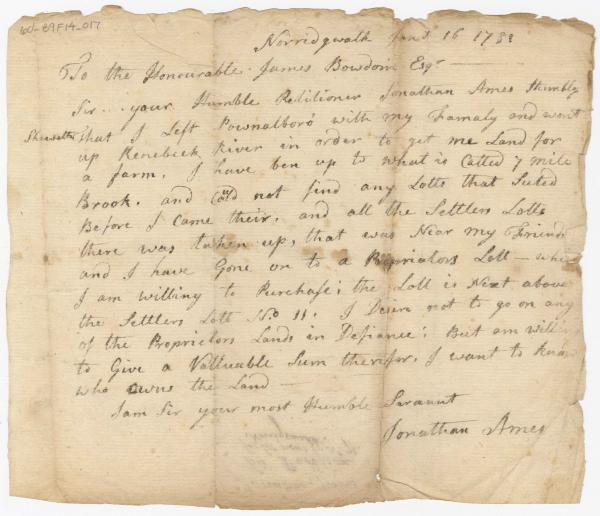 60-29F14-017
Norridgwalk Janr. 16 178
To the Honourable James Bowdoin Esqr
Sir... your Humble Petitioner Jonathan Ames Humbly
Sheweth that I Left Pownalboro' with my Famaly and went
up Kenebeck River in order to get me Land for
a farm, I have ben up to what is Called 7 mile
Brook. and Could not find any Lotts that Suted
Before I came their. and all the Settlers Lotts
there was taken up, that was Near my Friends
and I have Gone on to a Proprietors Lott – which
I am willing to Purchase; the Lott is Next above
the Settlers Lott No. 11. I Desire not to go on any
of the Proprietors Lands in Defiance; But am willing
to Give a Valluable Sum therefor. I want to know
who owns the Land –
I am Sir your most Humble Sarvant
Jonathan Ames